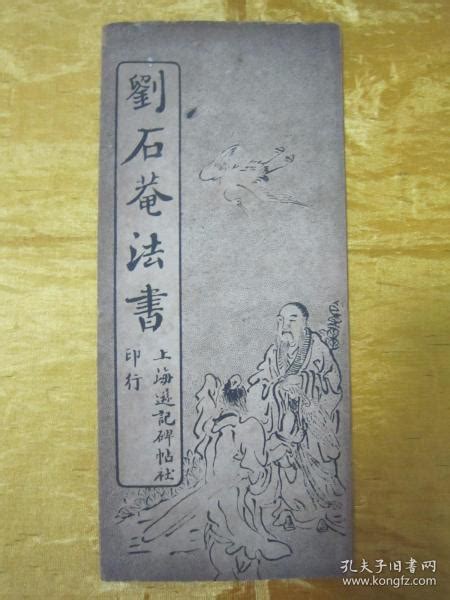 劉石菴法書
上海逰記碑帖社
印行
孔夫子旧书网
www.kongfz.com